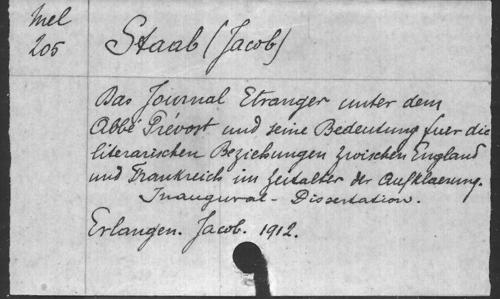 Mel
205
Staab (Jacob)
Das Journal Etranger unter dem
Abbé Prévost und seine Bedeutung fuer die
literarischen Beziehungen zwischen England
und Frankreich im Zeitalter der Aufklaerung.
Inaugural-Dissertation.
Erlangen. Jacob. 1912.